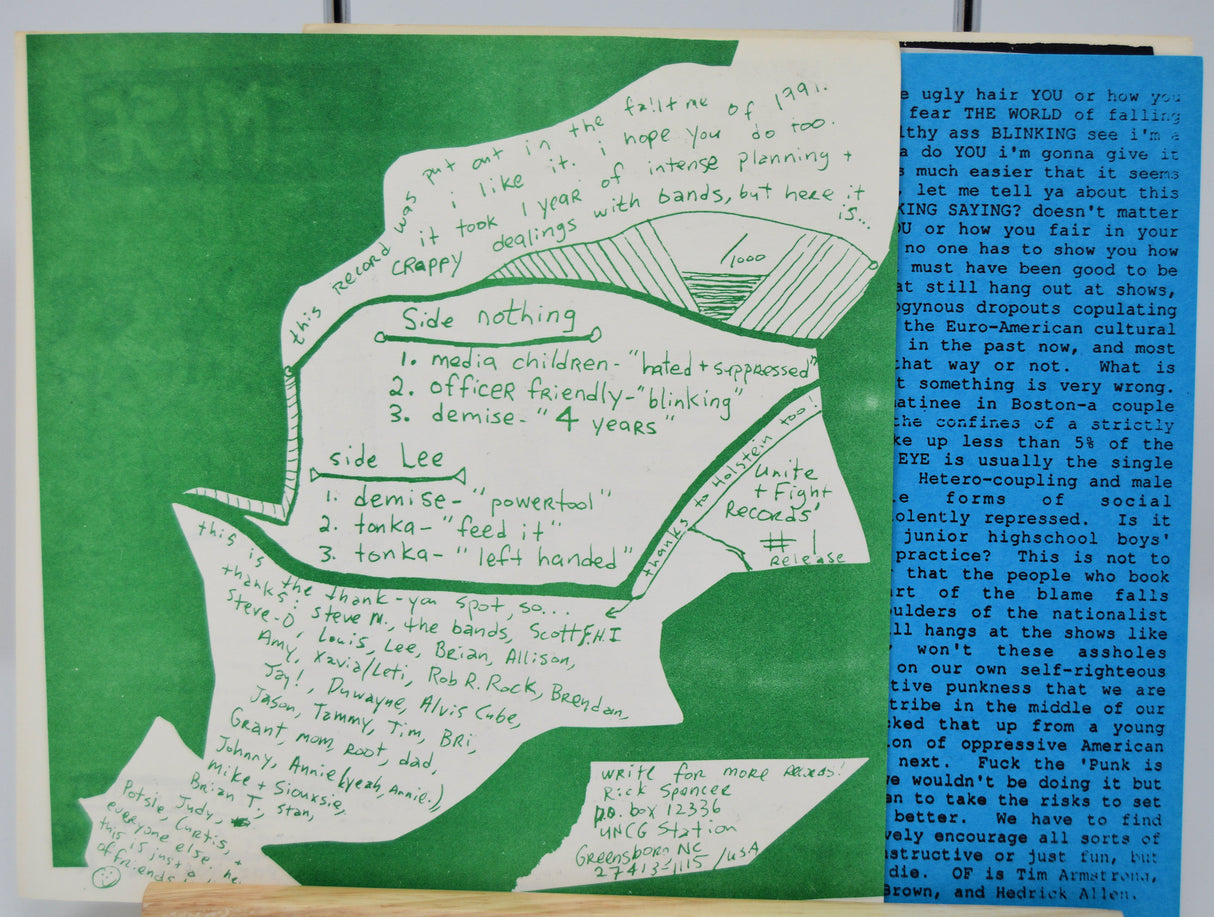 this record was put out in the falltme of 1991.
i like it. i hope you do too.
it took 1 year of intense planning +
crappy dealings with bands, but here it
is...
/1000
Side nothing
1. media children- "hated + suppressed"
2. officer friendly- "blinking"
3. demise- "4 years"
side Lee
1. demise- "powertool"
2. tonka- "feed it"
3. tonka- "left handed"
thanks to Holstein too!
Unite
+ Fight
Records'
# 1
Release
this is the thank-you spot, so...
thanks: Steve M., the bands, Scott F.H.I
Steve-O, Louis, Lee, Brian, Allison,
Amy, Xavia/Leti, Rob R. Rock, Brendan,
Jay!, Duwayne, Alvis Cube,
Jason, Tammy, Tim, BRi,
Grant, mom, root, dad,
Johnny, Annie (yeah, Annie.)
Mike + Siouxsie,
Brian T, Stan,
Potsie, Judy,
Curtis, +
everyone else,
this is just a
of friends
write for more records!
Rick Spencer
p.o. box 12336
UNCG Station
Greensboro NC
27413-1115 /USA
ugly hair YOU or how you
fear THE WORLD of falling
ass BLINKING see i'm a
do YOU i'm gonna give it
much easier that it seems
let me tell ya about this
SAYING? doesn't matter
or how you fair in your
no one has to show you how
must have been good to be
still hang out at shows,
dropouts copulating
the Euro-American cultural
in the past now, and most
that way or not. What is
something is very wrong.
matinee in Boston-a couple
the confines of a strictly
up less than 5% of the
EYE is usually the single
Hetero-coupling and male
forms of social
violently repressed. Is it
junior highschool boys'
practice? This is not to
that the people who book
of the blame falls
shoulders of the nationalist
hangs at the shows like
won't these assholes
on our own self-righteous
punkness that we are
tribe in the middle of our
that up from a young
of oppressive American
next. Fuck the 'Punk is
wouldn't be doing it but
to take the risks to set
better. We have to find
encourage all sorts of
or just fun, but
die. OF is Tim Armstrong,
Brown, and Hedrick Allen.